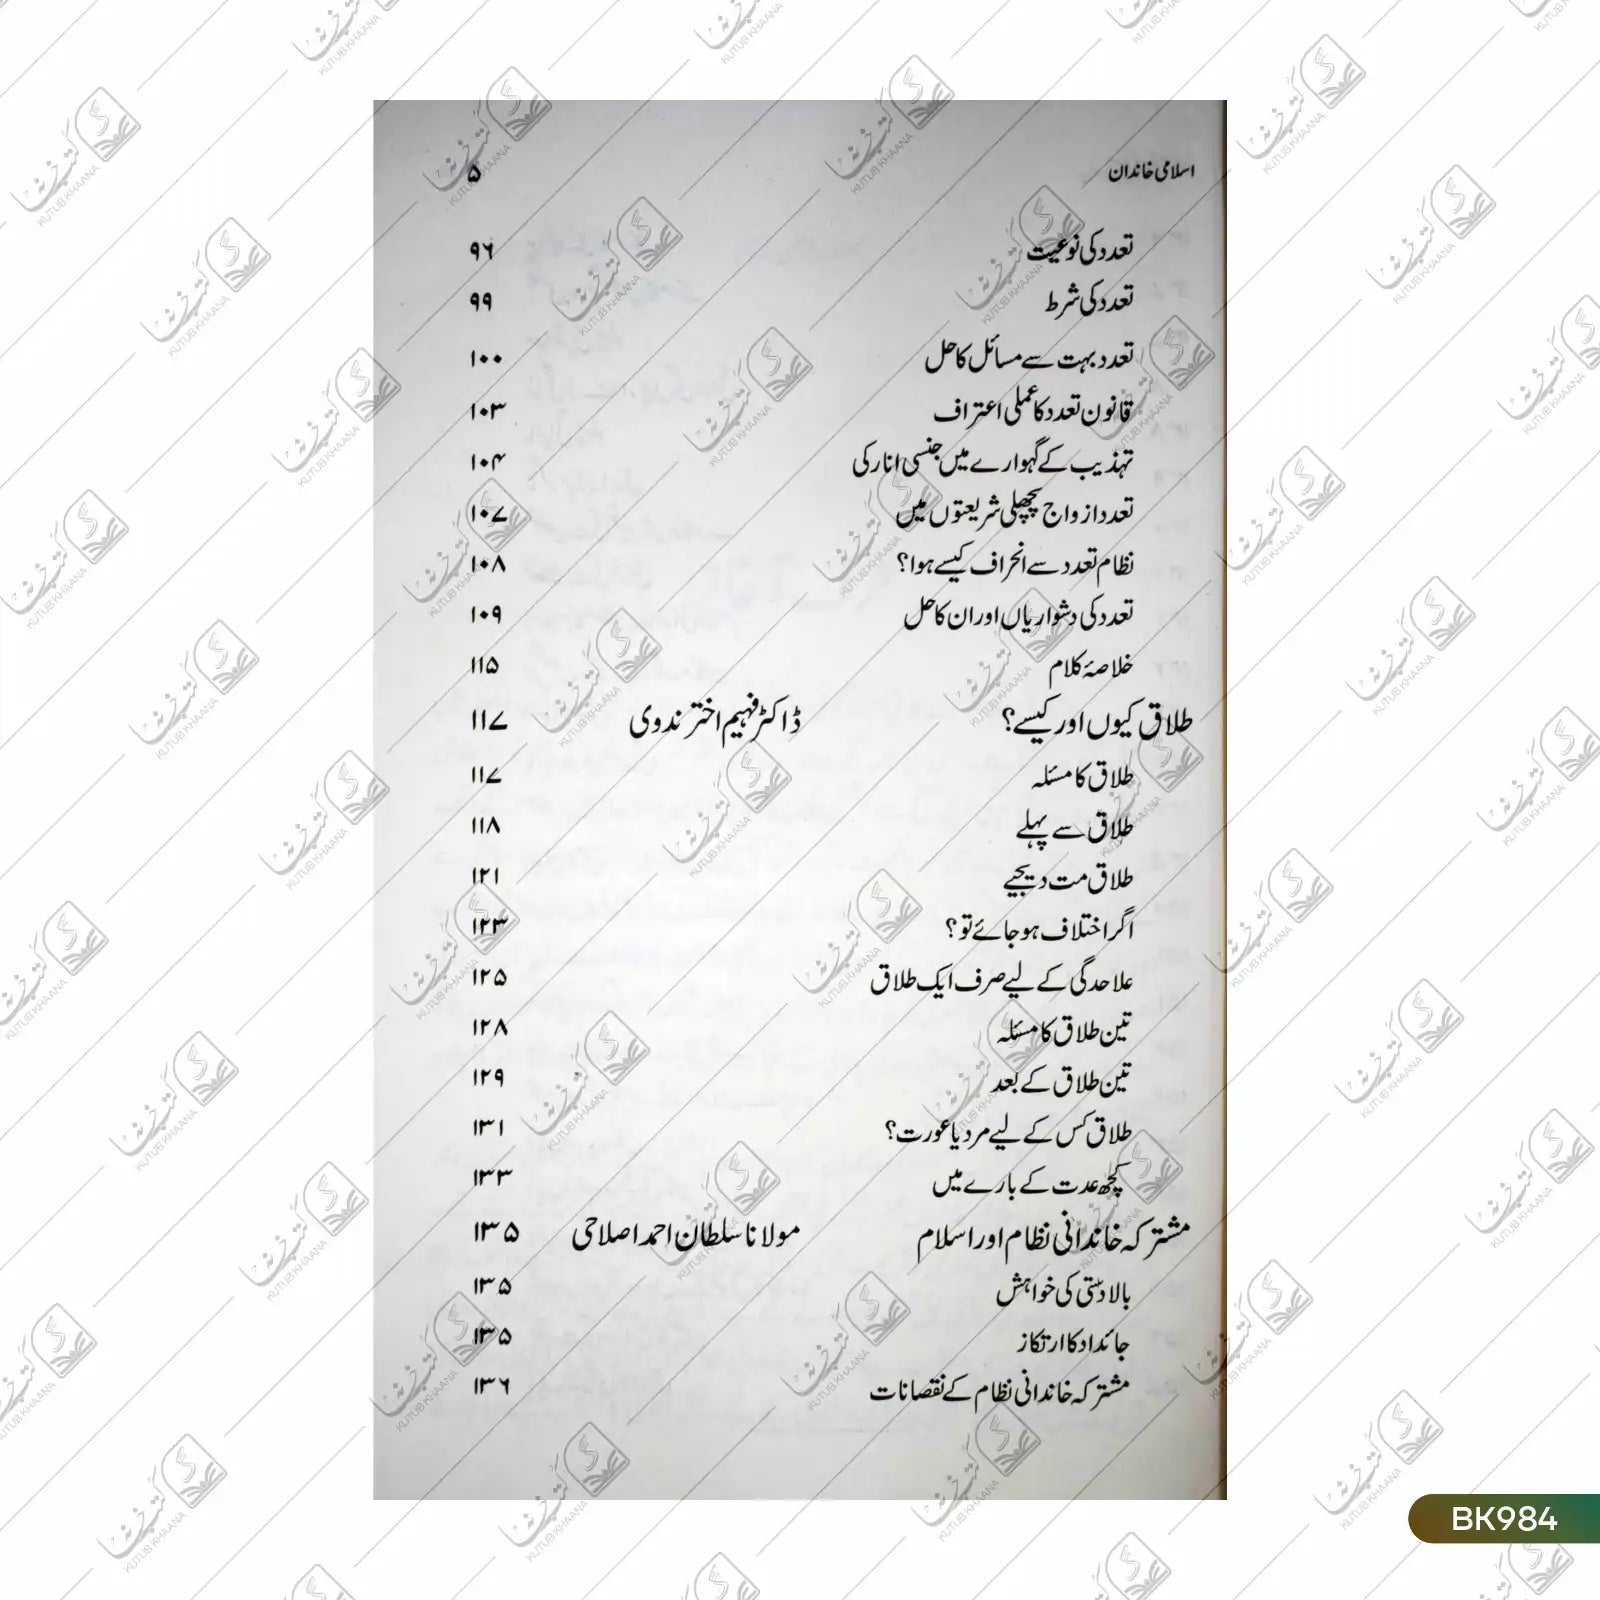 اسلامی خاندان ۵
تعدد کی نوعیت ۹۶
تعدد کی شرط ۹۹
تعدد بہت سے مسائل کا حل ۱۰۰
قانون تعدد کا عملی اعتراف ۱۰۳
تہذیب کے گہوارے میں جنسی انارکی ۱۰۴
تعدد ازواج پچھلی شریعتوں میں ۱۰۷
نظام تعدد سے انحراف کیسے ہوا؟ ۱۰۸
تعدد کی دشواریاں اور ان کا حل ۱۰۹
خلاصۂ کلام ۱۱۵
طلاق کیوں اور کیسے؟ ڈاکٹر فہیم اختر ندوی ۱۱۷
طلاق کا مسئلہ ۱۱۷
طلاق سے پہلے ۱۱۸
طلاق مت دیجیے ۱۲۱
اگر اختلاف ہو جائے تو؟ ۱۲۳
علاحدگی کے لیے صرف ایک طلاق ۱۲۵
تین طلاق کا مسئلہ ۱۲۸
تین طلاق کے بعد ۱۲۹
طلاق کس کے لیے مرد یا عورت؟ ۱۳۱
کچھ عدت کے بارے میں ۱۳۳
مشترکہ خاندانی نظام اور اسلام مولانا سلطان احمد اصلاحی ۱۳۵
بالادستی کی خواہش ۱۳۵
جائداد کا ارتکاز ۱۳۵
مشترکہ خاندانی نظام کے نقصانات ۱۳۶
BK984